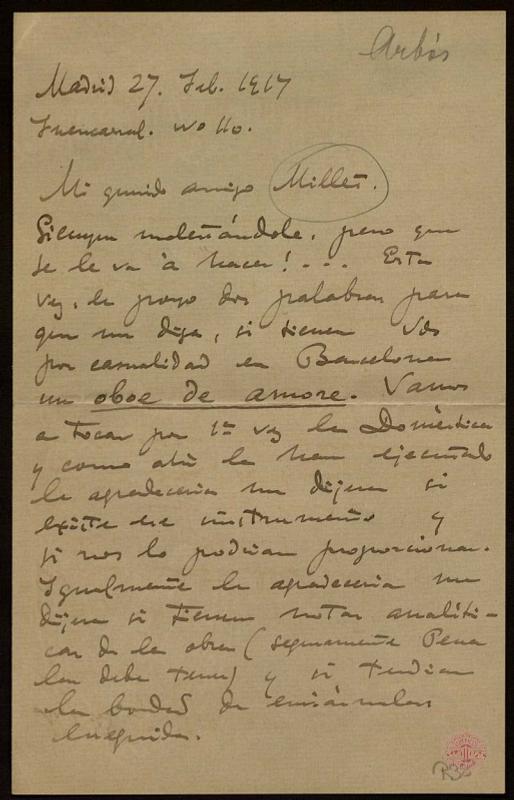 Arbós
Madrid 27. Feb. 1917
Fuencarral. no 110.
Mi querido amigo Millet.
Siempre molestándole, pero que
se le va à hacer! - . . . Esta
vez, le pongo dos palabras para
que me diga, si tienen Vds
por casualidad en Barcelona
un oboe de amore. Vamos
a tocar por 1ra vez la Doméstica
y como ahi la han ejecutado
le agradeceria me dijera si
existe ese instrumento y
si nos lo podrian proporcionar.
Igualmente le agradeceria me
dijera si tienen notas analíti-
cas de la obra (seguramente Pena
las debe tener) y si tendrian
la bondad de enviármelas
enseguida.